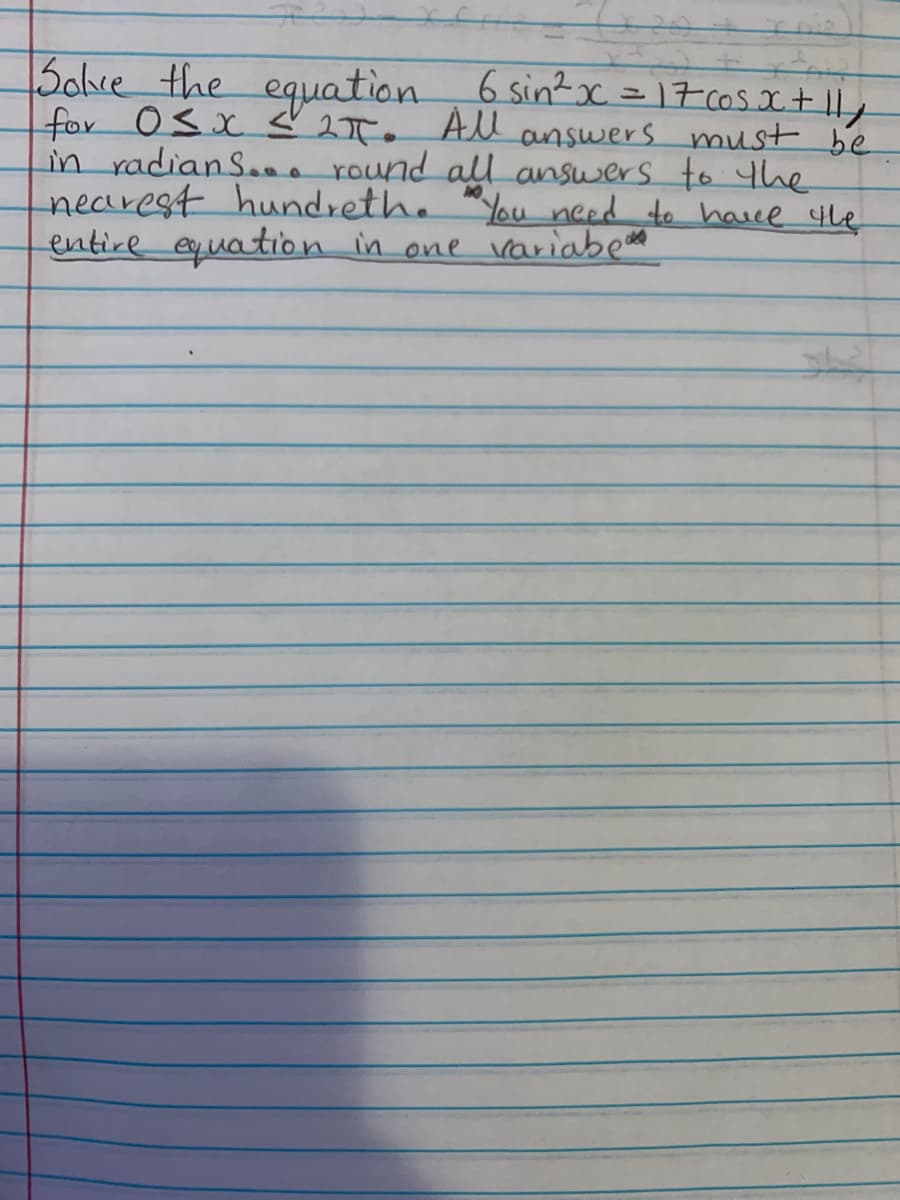 Solve the equation 6 sin²x = 17 cos x + 11,
for 0 ≤ x ≤ 2π. All answers must be
in radians.... round all answers to the
nearest hundreth. "You need to have the
entire equation in one variabe"